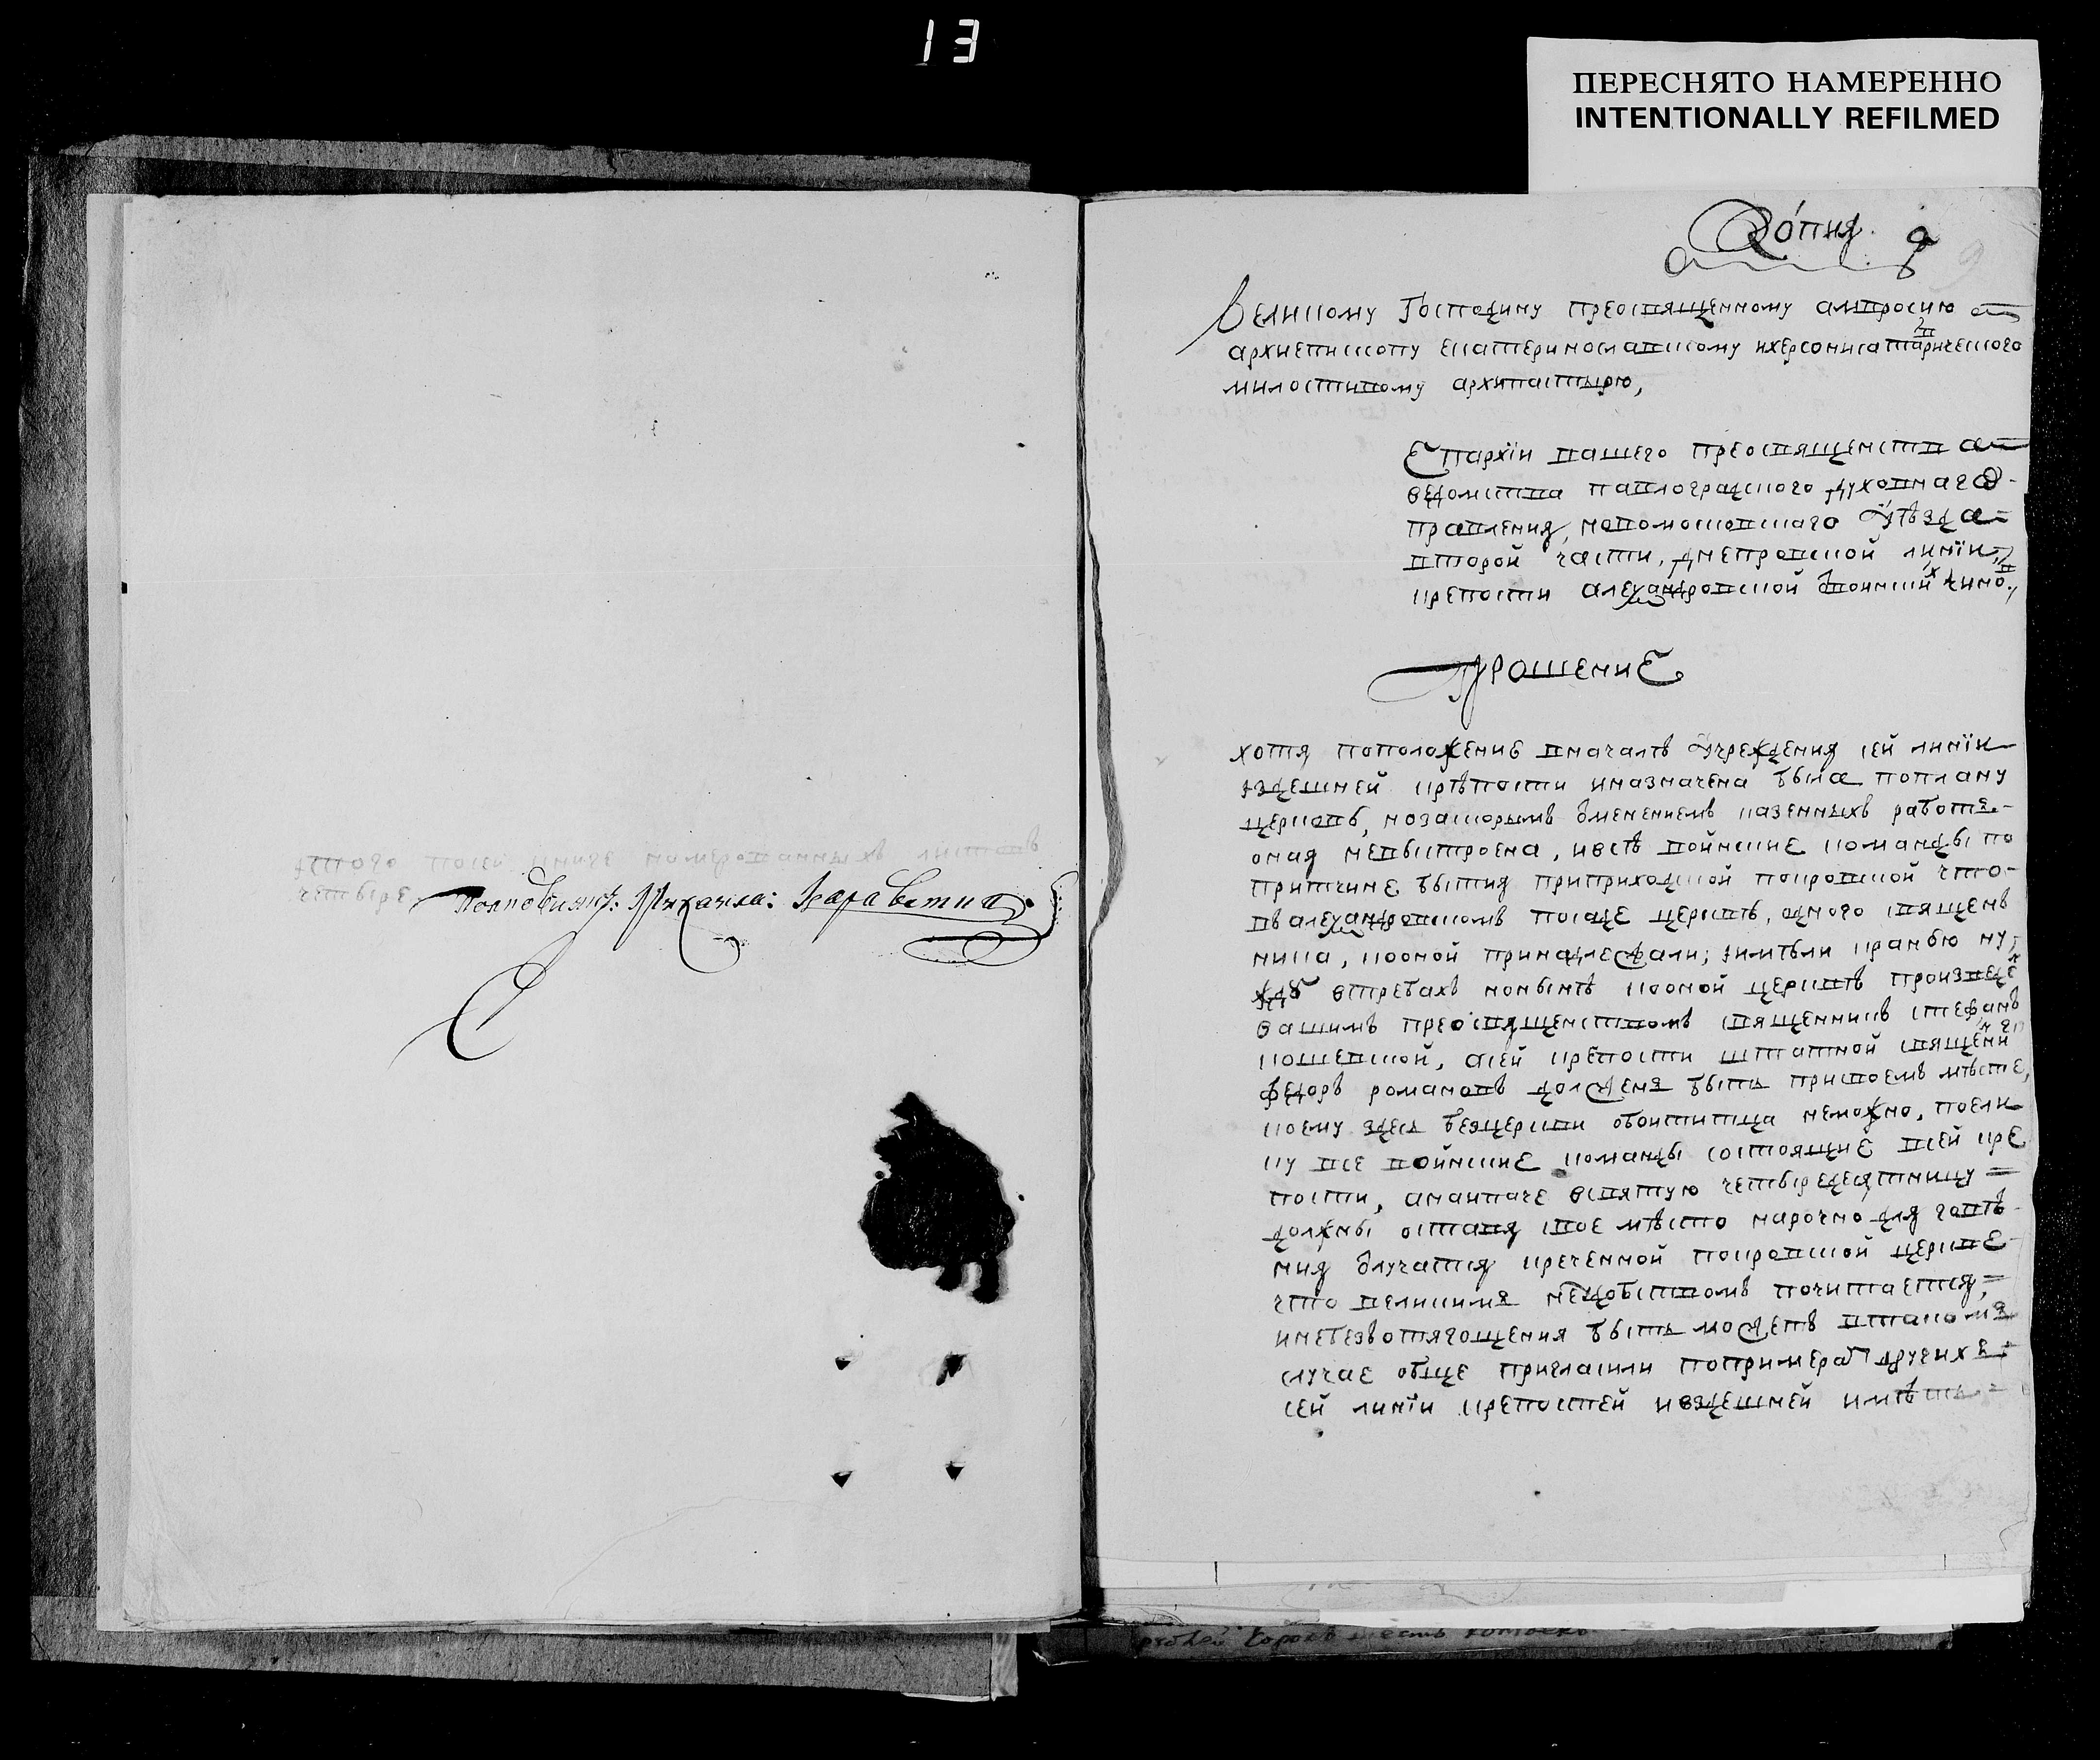 13
ПЕРЕСНЯТО НАМЕРЕННО
INTENTIONALLY REFILMED
итого всей книге номерованныхъ листовъ
четыре
Полковникъ: Михаила:
Копия 9
Великому Господину преосвященному амвросию
архиепископу екатеринославскому ихерсонисатаврического
милостивому архипастырю,
Епархїи вашего преосвященства
ведомства павлоградского духовнаго
правления, новомосковского уѣзда
второй части, днепровской линїи
крепости александровской воинскихъ чиновъ
Прошение
хотя поположение вначалѣ учреждения сей линїи
здешней крѣпости иназначена была поплану
церковь, нозаскорымъ умениемъ казенныхъ работъ
оная невыстроена, ивсѣ воинские команды по
притчине бытия приприходской покровской что
въалександровскомъ посаде церквѣ, одного священъ
ника, кооной принадлежали; зимѣли крайнюю ну
жду втребахъ нонынѣ кооной церквѣ произведе
вашимъ преосвященствомъ священникъ стефанъ
кошевской, асей крепости штатной священни
федоръ романовъ долженъ быть присвоемъ мѣсте,
коему здесь безцеркви обоитится неможно, поели
ку все воинские команды состоящие всей кре
пости, анаипаче всвятую четыредесятницу
должны оставя свое мѣсто нарочно для говѣ
ния случатся креченной покровской церкве
что великимъ неудобствомъ почитается,
инебезъотягощения быть можетъ втакомъ
случае обще пригласили попримеру другихъ
сей линїи крепостей извдешней имѣть